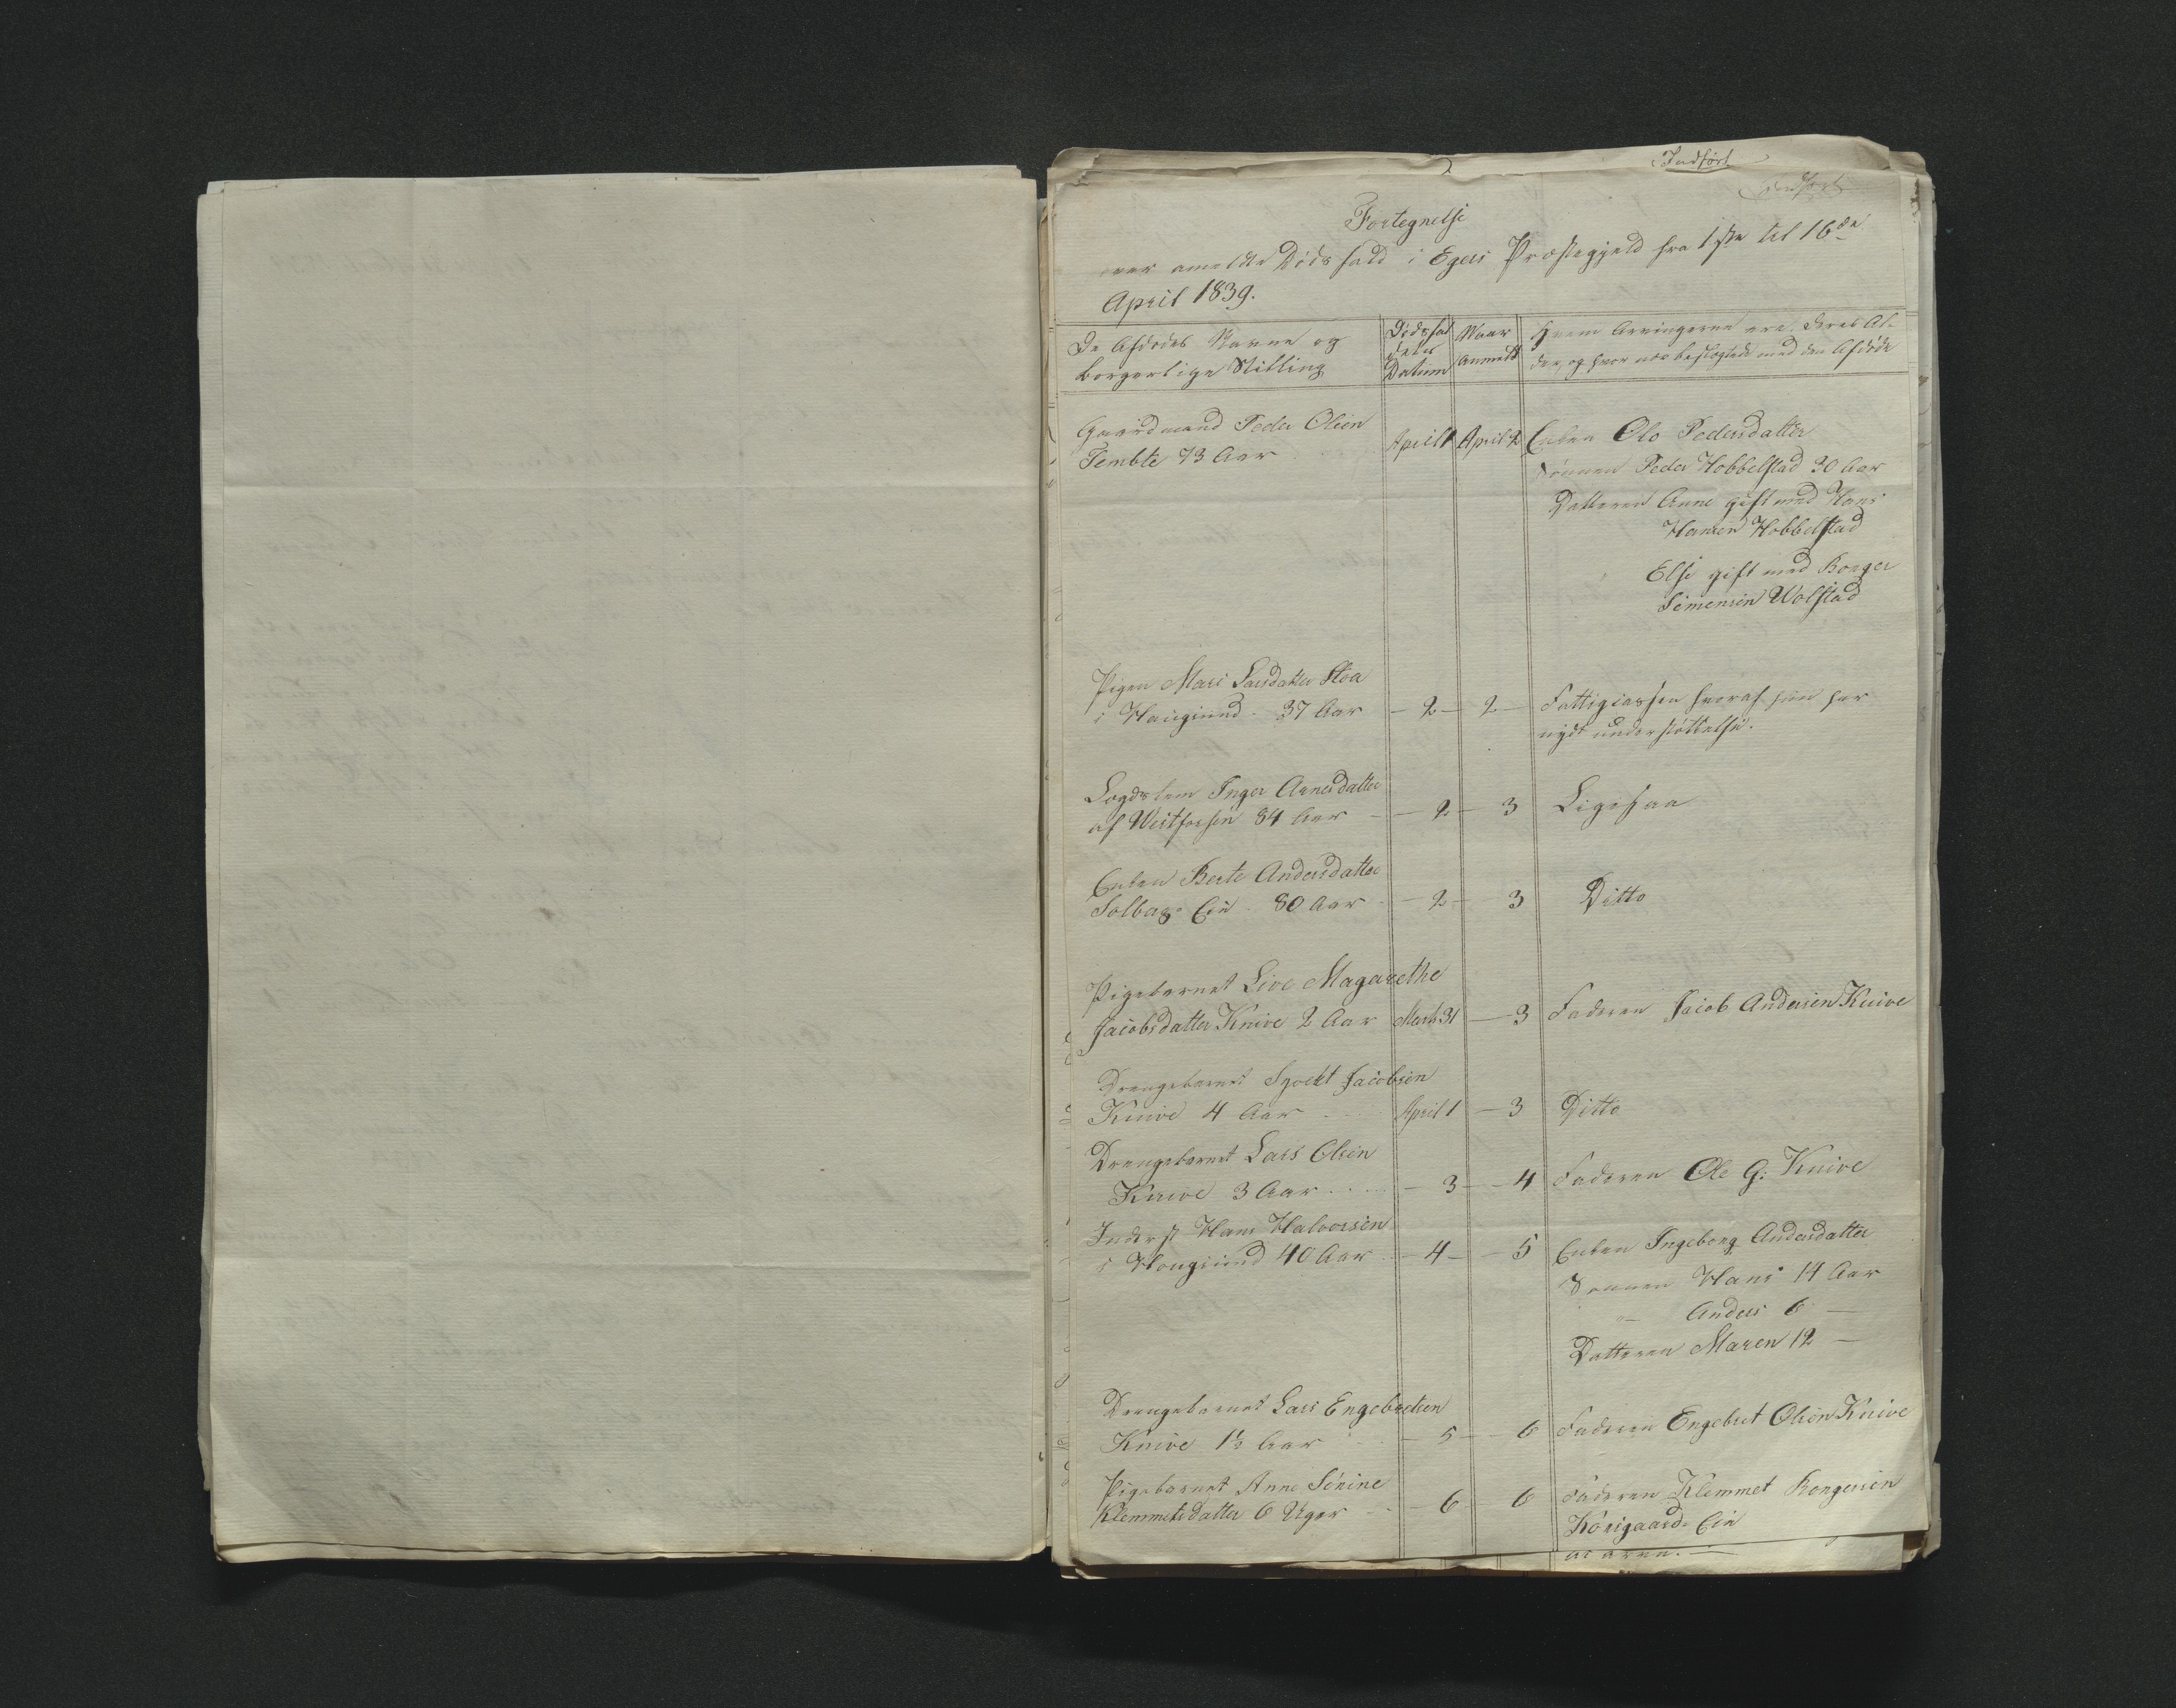 Indført
Indført
Fortegnelse
over anmeldte Dødsfald i Egers Præstegjeld fra 1ste til 16de
April 1839.
De Afdødes Navne og
borgerlige Stilling
Dødsfal
dets
Datum
Naar
Anmeldt
Hvem Arvingerne ere, deres Al-
der, og hvor nær beslægtede med den Afdøde
Gaardmand Peder Olsen
Tembte 73 Aar
April 1
April 2
Enken Olo Pedersdatter
Sønnen Peder Hobbelstad 30 Aar
Datteren Anne gift med Hans
Hansen Hobbelstad
Else gift med Borger
Simensen Wolstad
Pigen Mari Larsdatter Stoa
i Haugsund - 37 Aar
- 2 - 2 -
Fattigkassen hvoraf hun har
nydt understøttelse.
Lægdslem Inger Arnesdatter
af Westfossen 84 Aar -
- 2 - 3
Ligesaa
Enken Berte Andersdatter
Solberg Eie - 80 Aar
- 2 - 3
Ditto
Pigebarnet Live Magarethe
Jacobsdatter Knive 2 Aar
Marts 31
- 3
Faderen Jacob Andersen Knive
Drengebarnet Syvert Jacobsen
Knive 4 Aar
April 1
- 3
Ditto
Drengebarnet Lars Olsen
Knive 3 Aar
- 3 - - 4
Faderen Ole G: Knive
Inderst Hans Halvorsen
i Hougsund 40 Aar
- 4 - - 5
Enken Ingeborg Andersdatter
Sønnen Hans 14 Aar
- Anders 6 -
Datteren Maren 12 -
Drengebarnet Lars Engebretsen
Knive 1½ Aar
- 5 - - 6
Faderen Engebret Olsen Knive
Pigebarnet Anne Sirine
Klemmetsdatter 6 Uger
- 6 - 6
Faderen Klemmet Borgersen
Korsgaards Eie